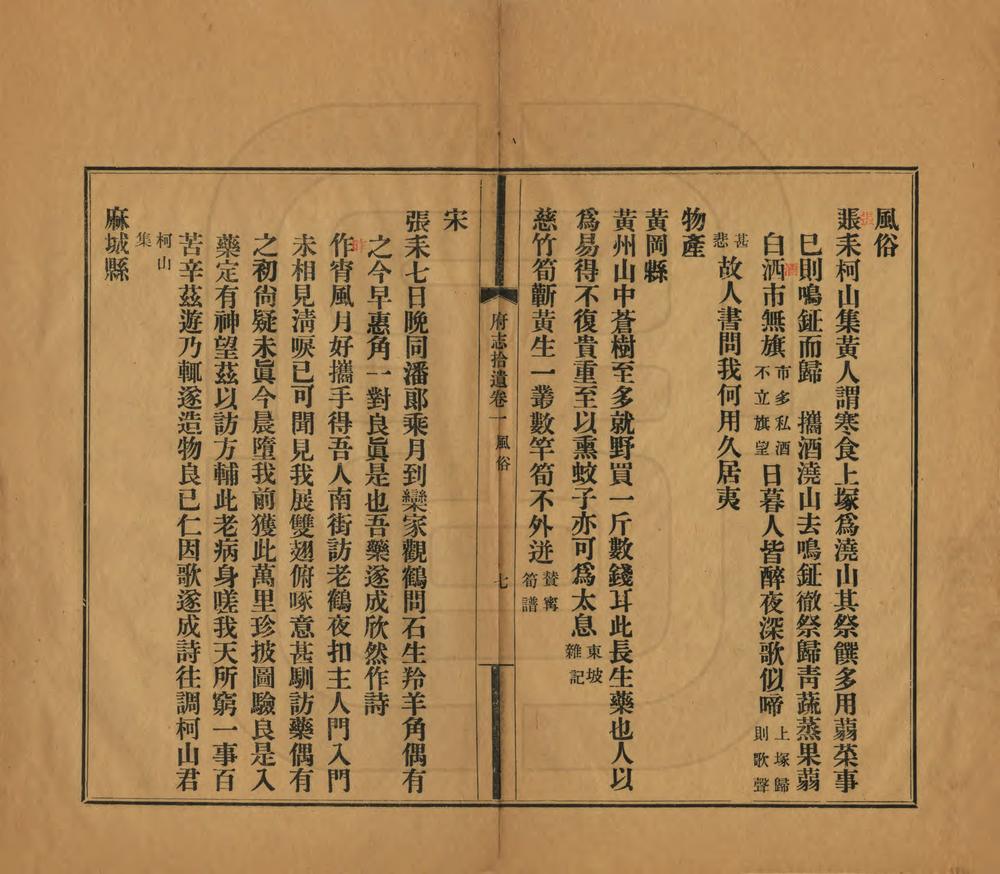 風俗
張耒柯山集黃人謂寒食上塚爲澆山其祭饌多用蒻菜事
巳則鳴鉦而歸　攜酒澆山去鳴鉦徹祭歸靑蔬蒸果蒻
白洒市無旗市多私酒不立旗望日暮人皆醉夜深歌似啼上塚歸則歌聲
甚悲故人書問我何用久居夷
物產
黃岡縣
黃州山中蒼樹至多就野買一斤數錢耳此長生藥也人以
爲易得不復貴重至以熏蚊子亦可爲太息東坡雜記
慈竹筍蘄黃生一叢數竿筍不外迸贊寧筍譜
府志拾遺卷一　風俗　七
宋
張耒七日晚同潘郞乘月到欒家觀鶴問石生羚羊角偶有
之今早惠角一對良眞是也吾藥遂成欣然作詩
作宵風月好攜手得吾人南街訪老鶴夜扣主人門入門
未相見淸唳已可聞見我展雙翅俯啄意甚馴訪藥偶有
之初尙疑未眞今晨墮我前獲此萬里珍披圖驗良是入
藥定有神望茲以訪方輔此老病身嗟我天所窮一事百
苦辛茲遊乃輒遂造物良已仁因歌遂成詩往調柯山君
柯山集
麻城縣
張
酒
昨